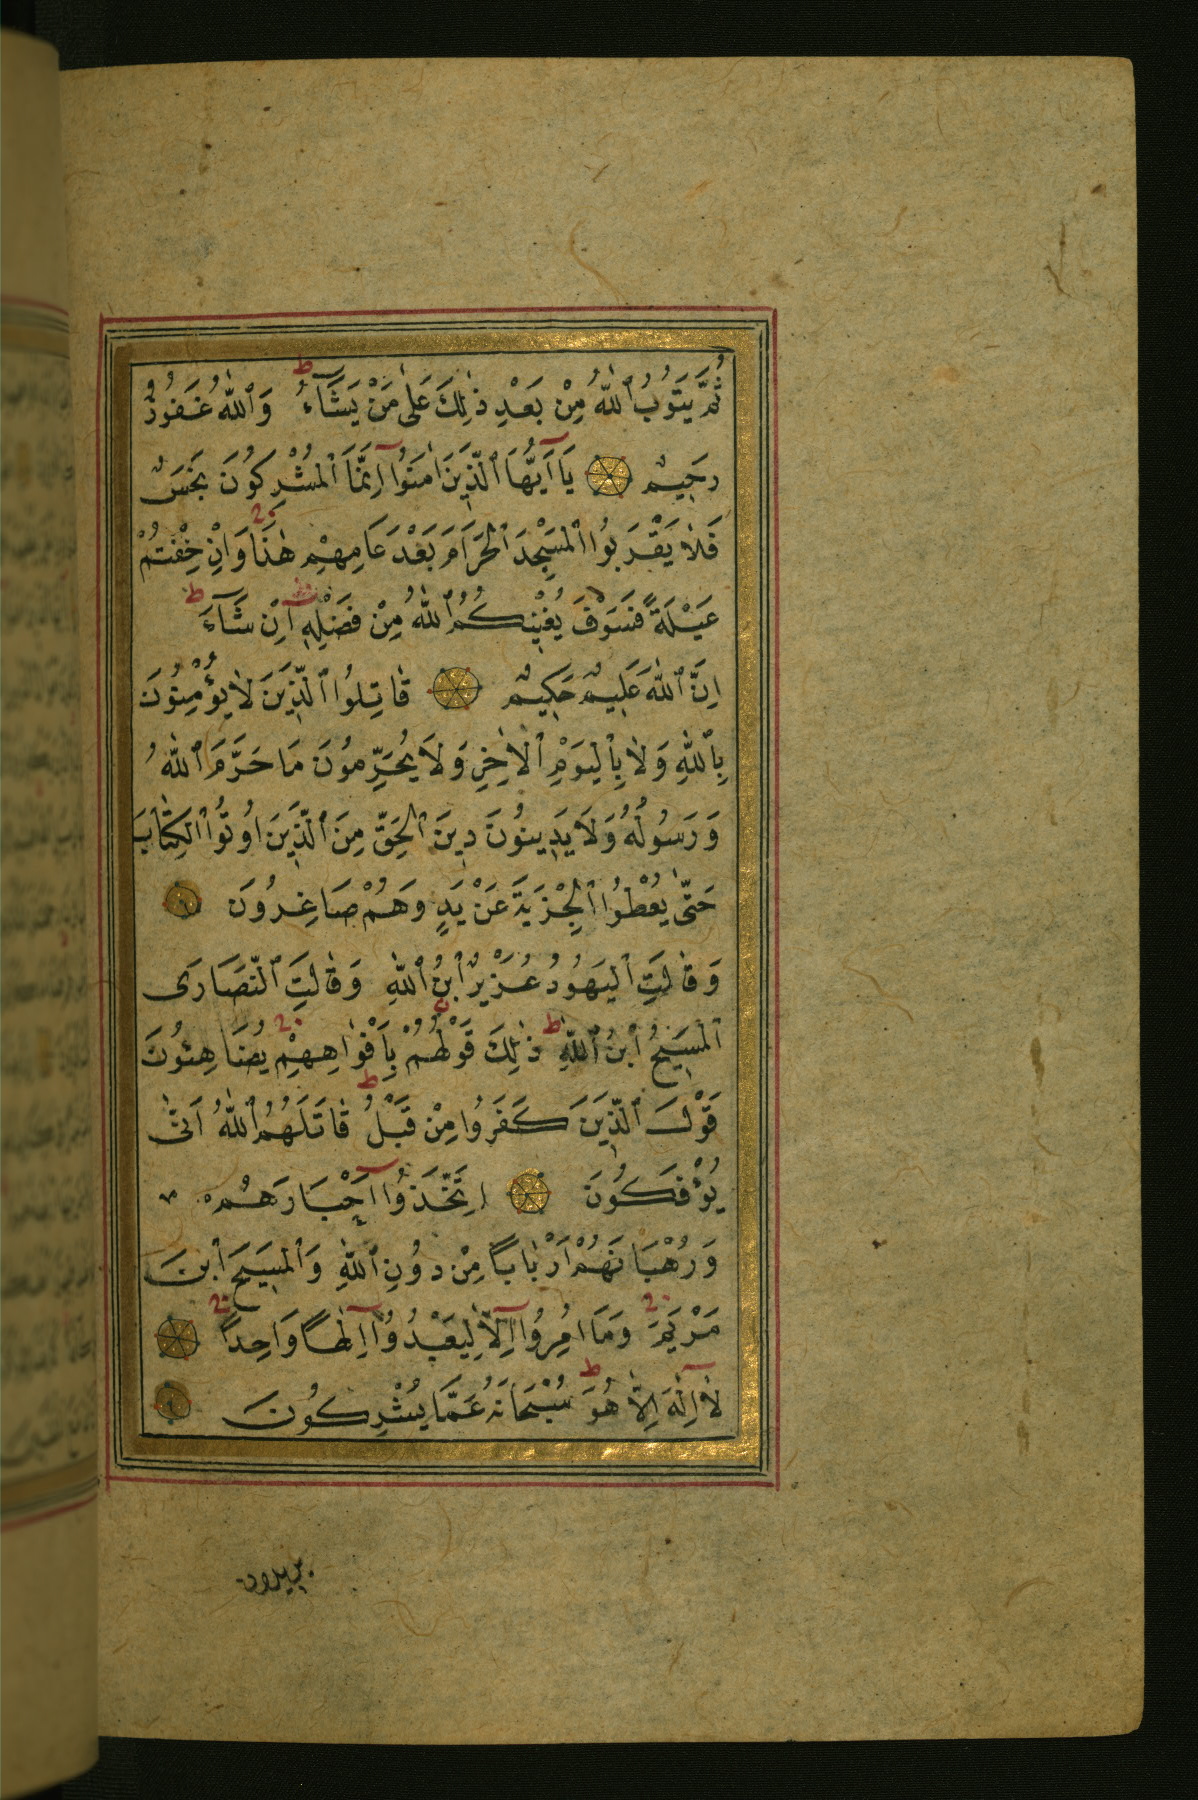 ثُمَّ يَتُوبُ ٱللّٰهُ مِنْ بَعْدِ ذٰلِكَ عَلٰى مَنْ يَشَآءُ ط وَٱللّٰهُ غَفُورٌ
رَحِيمٌ يَآ اَيُّهَا ٱلَّذِينَ اٰمَنُوٓا اِنَّمَا ٱلْمُشْرِكُونَ نَجَسٌ
فَلَا يَقْرَبُوا ٱلْمَسْجِدَ ٱلْحَرَامَ بَعْدَ عَامِهِمْ هٰذَا وَاِنْ خِفْتُمْ
عَيْلَةً فَسَوْفَ يُغْنِيكُمُ ٱللّٰهُ مِنْ فَضْلِهٖٓ اِنْ شَآءَ ط
اِنَّ ٱللّٰهَ عَلِيمٌ حَكِيمٌ قَاتِلُوا ٱلَّذِينَ لَا يُؤْمِنُونَ
بِٱللّٰهِ وَلَا بِٱلْيَوْمِ ٱلْاٰخِرِ وَلَا يُحَرِّمُونَ مَا حَرَّمَ ٱللّٰهُ
وَرَسُولُهُ وَلَا يَدِينُونَ دِينَ ٱلْحَقِّ مِنَ ٱلَّذِينَ اُوتُوا ٱلْكِتَابَ
حَتّٰى يُعْطُوا ٱلْجِزْيَةَ عَنْ يَدٍ وَهُمْ صَاغِرُونَ
وَقَالَتِ ٱلْيَهُودُ عُزَيْرٌ ٱبْنُ ٱللّٰهِ وَقَالَتِ ٱلنَّصَارَى
ٱلْمَسِيحُ ٱبْنُ ٱللّٰهِ ط ذٰلِكَ قَوْلُهُمْ بِاَفْوَاهِهِمْ يُضَاهِئُونَ
قَوْلَ ٱلَّذِينَ كَفَرُوا مِنْ قَبْلُ ط قَاتَلَهُمُ ٱللّٰهُ اَنّٰى
يُؤْفَكُونَ اِتَّخَذُوٓا اَحْبَارَهُمْ
وَرُهْبَانَهُمْ اَرْبَابًا مِنْ دُونِ ٱللّٰهِ وَٱلْمَسِيحَ ٱبْنَ
مَرْيَمَ وَمَآ اُمِرُوٓا اِلَّا لِيَعْبُدُوٓا اِلٰهًا وَاحِدًا
لَآ اِلٰهَ اِلَّا هُوَ ط سُبْحَانَهُ عَمَّا يُشْرِكُونَ
يريدون